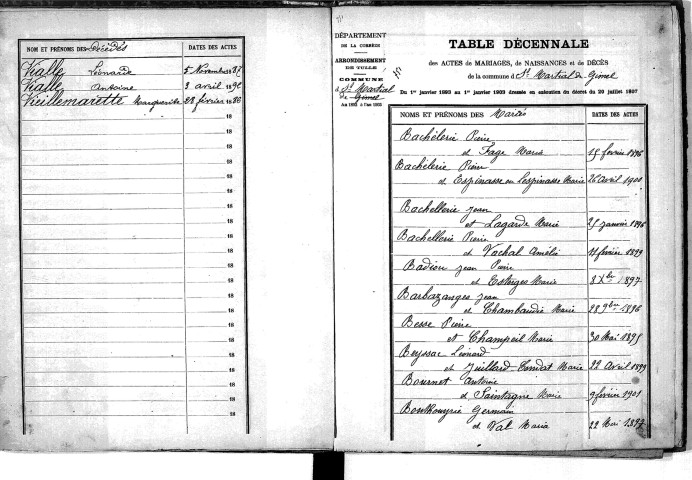 NOM ET PRÉNOMS DES Décédés
DATES DES ACTES
Vialle Léonard 5 Novembre 1887
Vialle Antoine 3 avril 1890
Vieillemarette Marguerite 28 février 1888
18
18
18
18
18
18
18
18
18
18
18
18
18
18
18
18
18
18
DÉPARTEMENT
DE LA CORRÈZE
ARRONDISSEMENT
DE TULLE
COMMUNE
d St Martial
de Gimel
An 1893 à l'an 1903
TABLE DÉCENNALE
des ACTES de MARIAGES, de NAISSANCES et de DÉCÈS
de la commune d St Martial de Gimel
Du 1er janvier 1893 au 1er janvier 1903 dressée en exécution du décret du 20 juillet 1807
NOMS ET PRÉNOMS DES Mariés
DATES DES ACTES
Bachélerie Pierre
et Fage Marie 15 février 1896
Bachélerie Pierre
et Espinasse ou Lespinasse Marie 26 avril 1900
Bachellerie Jean
et Lagarde Marie 25 janvier 1896
Bachellerie Pierre
et Vachal Amélie 11 février 1899
Badiou Jean Pierre
et Estorges Marie 8 Xbre 1897
Barbazanges Jean
et Chambaudie Marie 28 9bre 1896
Besse Pierre
et Champeil Marie 30 Mai 1895
Beyssac Léonard
et Juillard-Condat Marie 22 Avril 1899
Bournet Antoine
et Saintagne Marie 9 février 1901
Bouthouyrie Germain
et Val Maria 22 Mai 1897